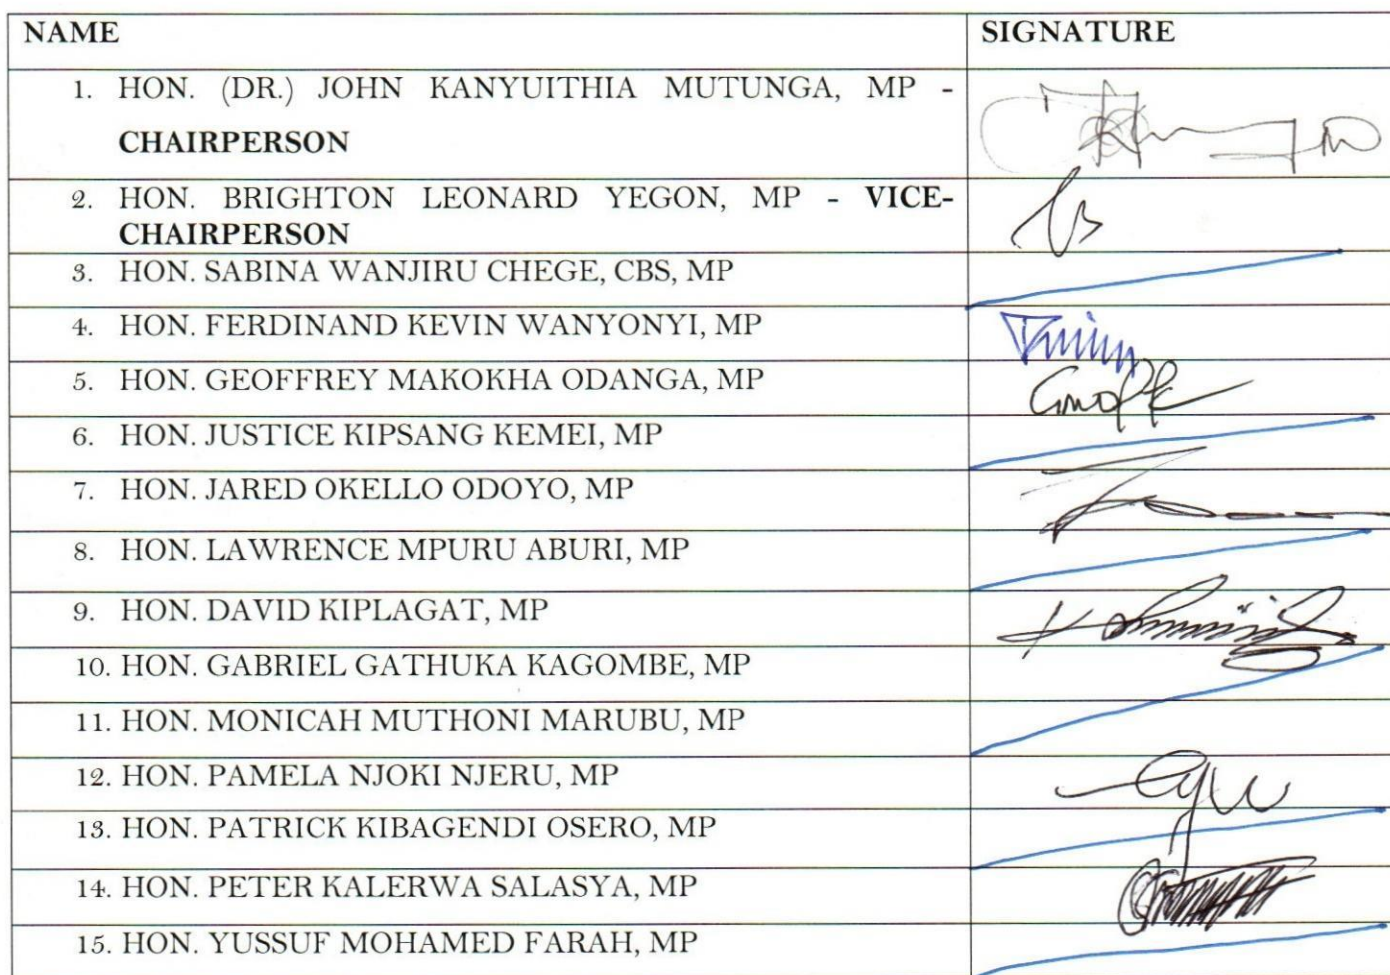 NAME SIGNATURE
1. HON. (DR.) JOHN KANYUITHIA MUTUNGA, MP -
CHAIRPERSON
2. HON. BRIGHTON LEONARD YEGON, MP - VICE-
CHAIRPERSON
3. HON. SABINA WANJIRU CHEGE, CBS, MP
4. HON. FERDINAND KEVIN WANYONYI, MP
5. HON. GEOFFREY MAKOKHA ODANGA, MP
6. HON. JUSTICE KIPSANG KEMEI, MP
7. HON. JARED OKELLO ODOYO, MP
8. HON. LAWRENCE MPURU ABURI, MP
9. HON. DAVID KIPLAGAT, MP
10. HON. GABRIEL GATHUKA KAGOMBE, MP
11. HON. MONICAH MUTHONI MARUBU, MP
12. HON. PAMELA NJOKI NJERU, MP
13. HON. PATRICK KIBAGENDI OSERO, MP
14. HON. PETER KALERWA SALASYA, MP
15. HON. YUSSUF MOHAMED FARAH, MP